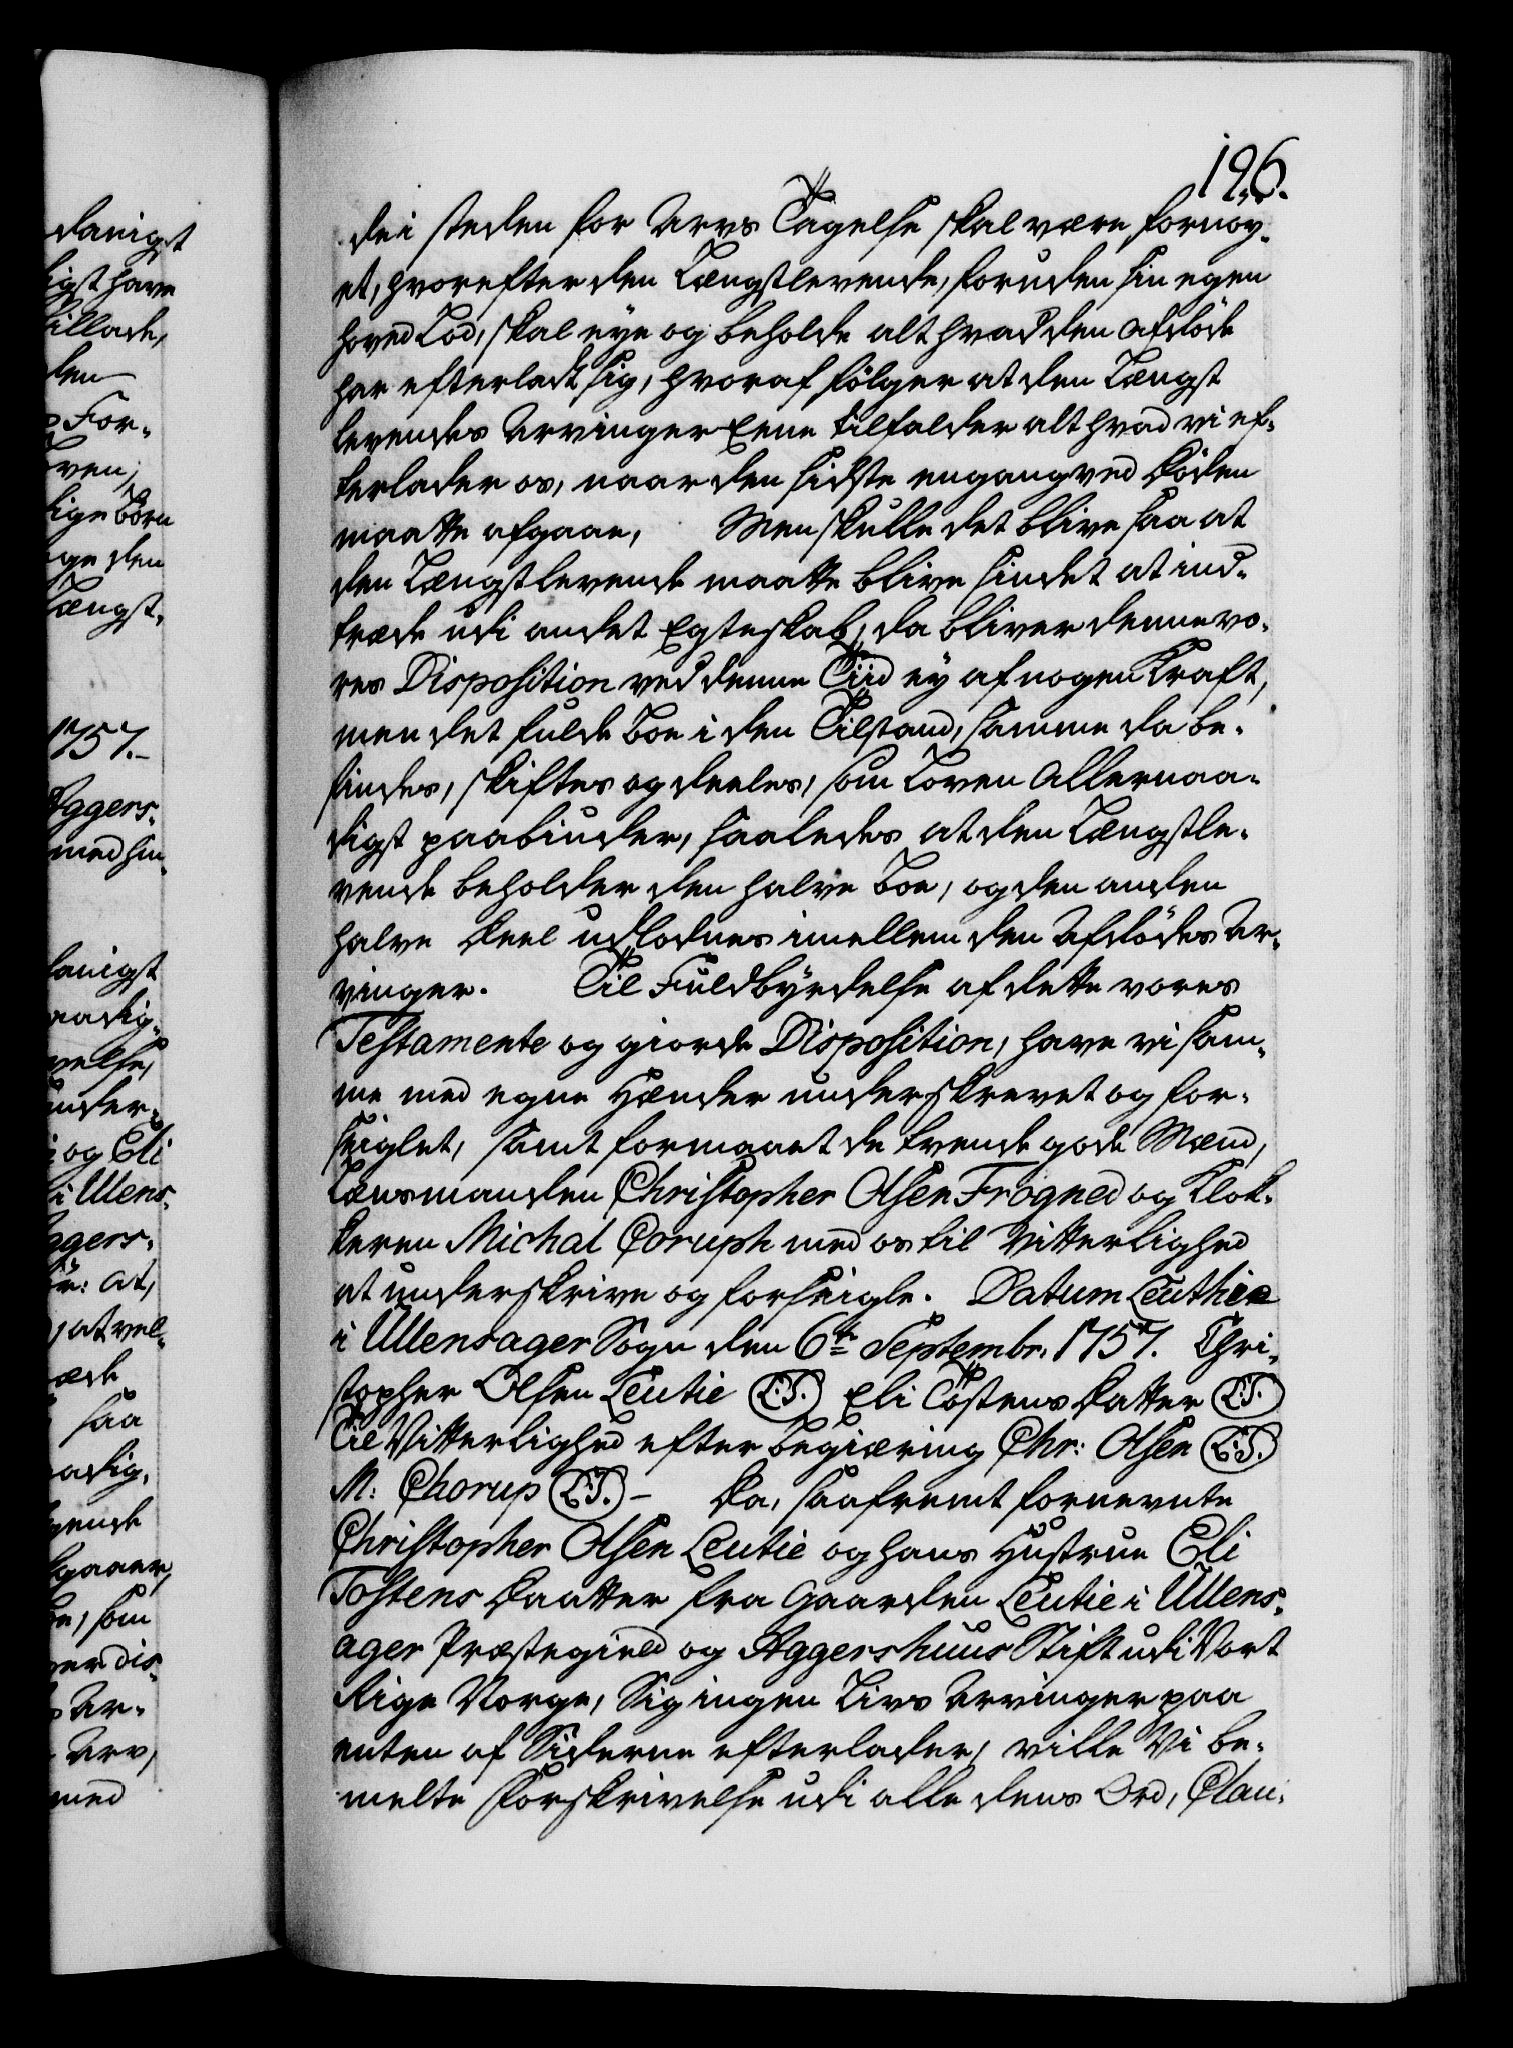 196.
de i steden for Arvs Tagelse skal være fornøy-
et, hvorefter den Længstlevende, foruden sin egen
hoved Lod, skal eye og beholde alt hvad den afdöde
har efterladt sig, hvoraf fölger at den Længst
levendes Arvinger Eene tilfalder alt hvad vi ef-
terlader os, naar den sidste engang ved Döden
maatte afgaae, Men skulle det blive saa at
den Længstlevende maatte blive sindet at ind-
træde udi andet Egteskab, da bliver denne vo-
res Disposition ved denne Tiid ey af nogen Kraft,
men det fulde Boe i den Tilstand, samme da be-
findes, skiftes og deeles, som Loven Allernaa-
digst paabiuder, saaledes at den Længstle-
vende beholder den halve Boe, og den anden
halve Deel udlodnes imellem den Afdödes Ar-
vinger. Til Fuldbyrdelse af dette vores
Testamente og giorde Disposition, have vi sam-
me med egne Hænder underskrevet og for-
seiglet, samt formaaet de tvende gode Mænd,
Lensmanden Christopher Olsen Frogned og Klok-
keren Michal Coruph med os til Vitterlighed
at underskrive og forseigle. Datum Leuthie
i Ullensager Sogn den 6te Septembr. 1757. Chri-
stopher Olsen Leutie (L.S.) Eli Tostens Datter (L.S.)
Til Vitterlighed efter Begiæring Chr: Olsen (L.S.)
M: Chorup (L.S.) - Da, saafremt fornevnte
Christopher Olsen Leutie og hans Hustrue Eli
Tostens Daatter fra Gaarden Leutie i Ullens-
ager Præstegield og Aggershuus Stift udi Vort
Rige Norge, Sig ingen Livs Arvinger paa
enten af Siderne efterlader, ville Vi be-
melte Forskrivelse udi alle dens Ord, Clau-